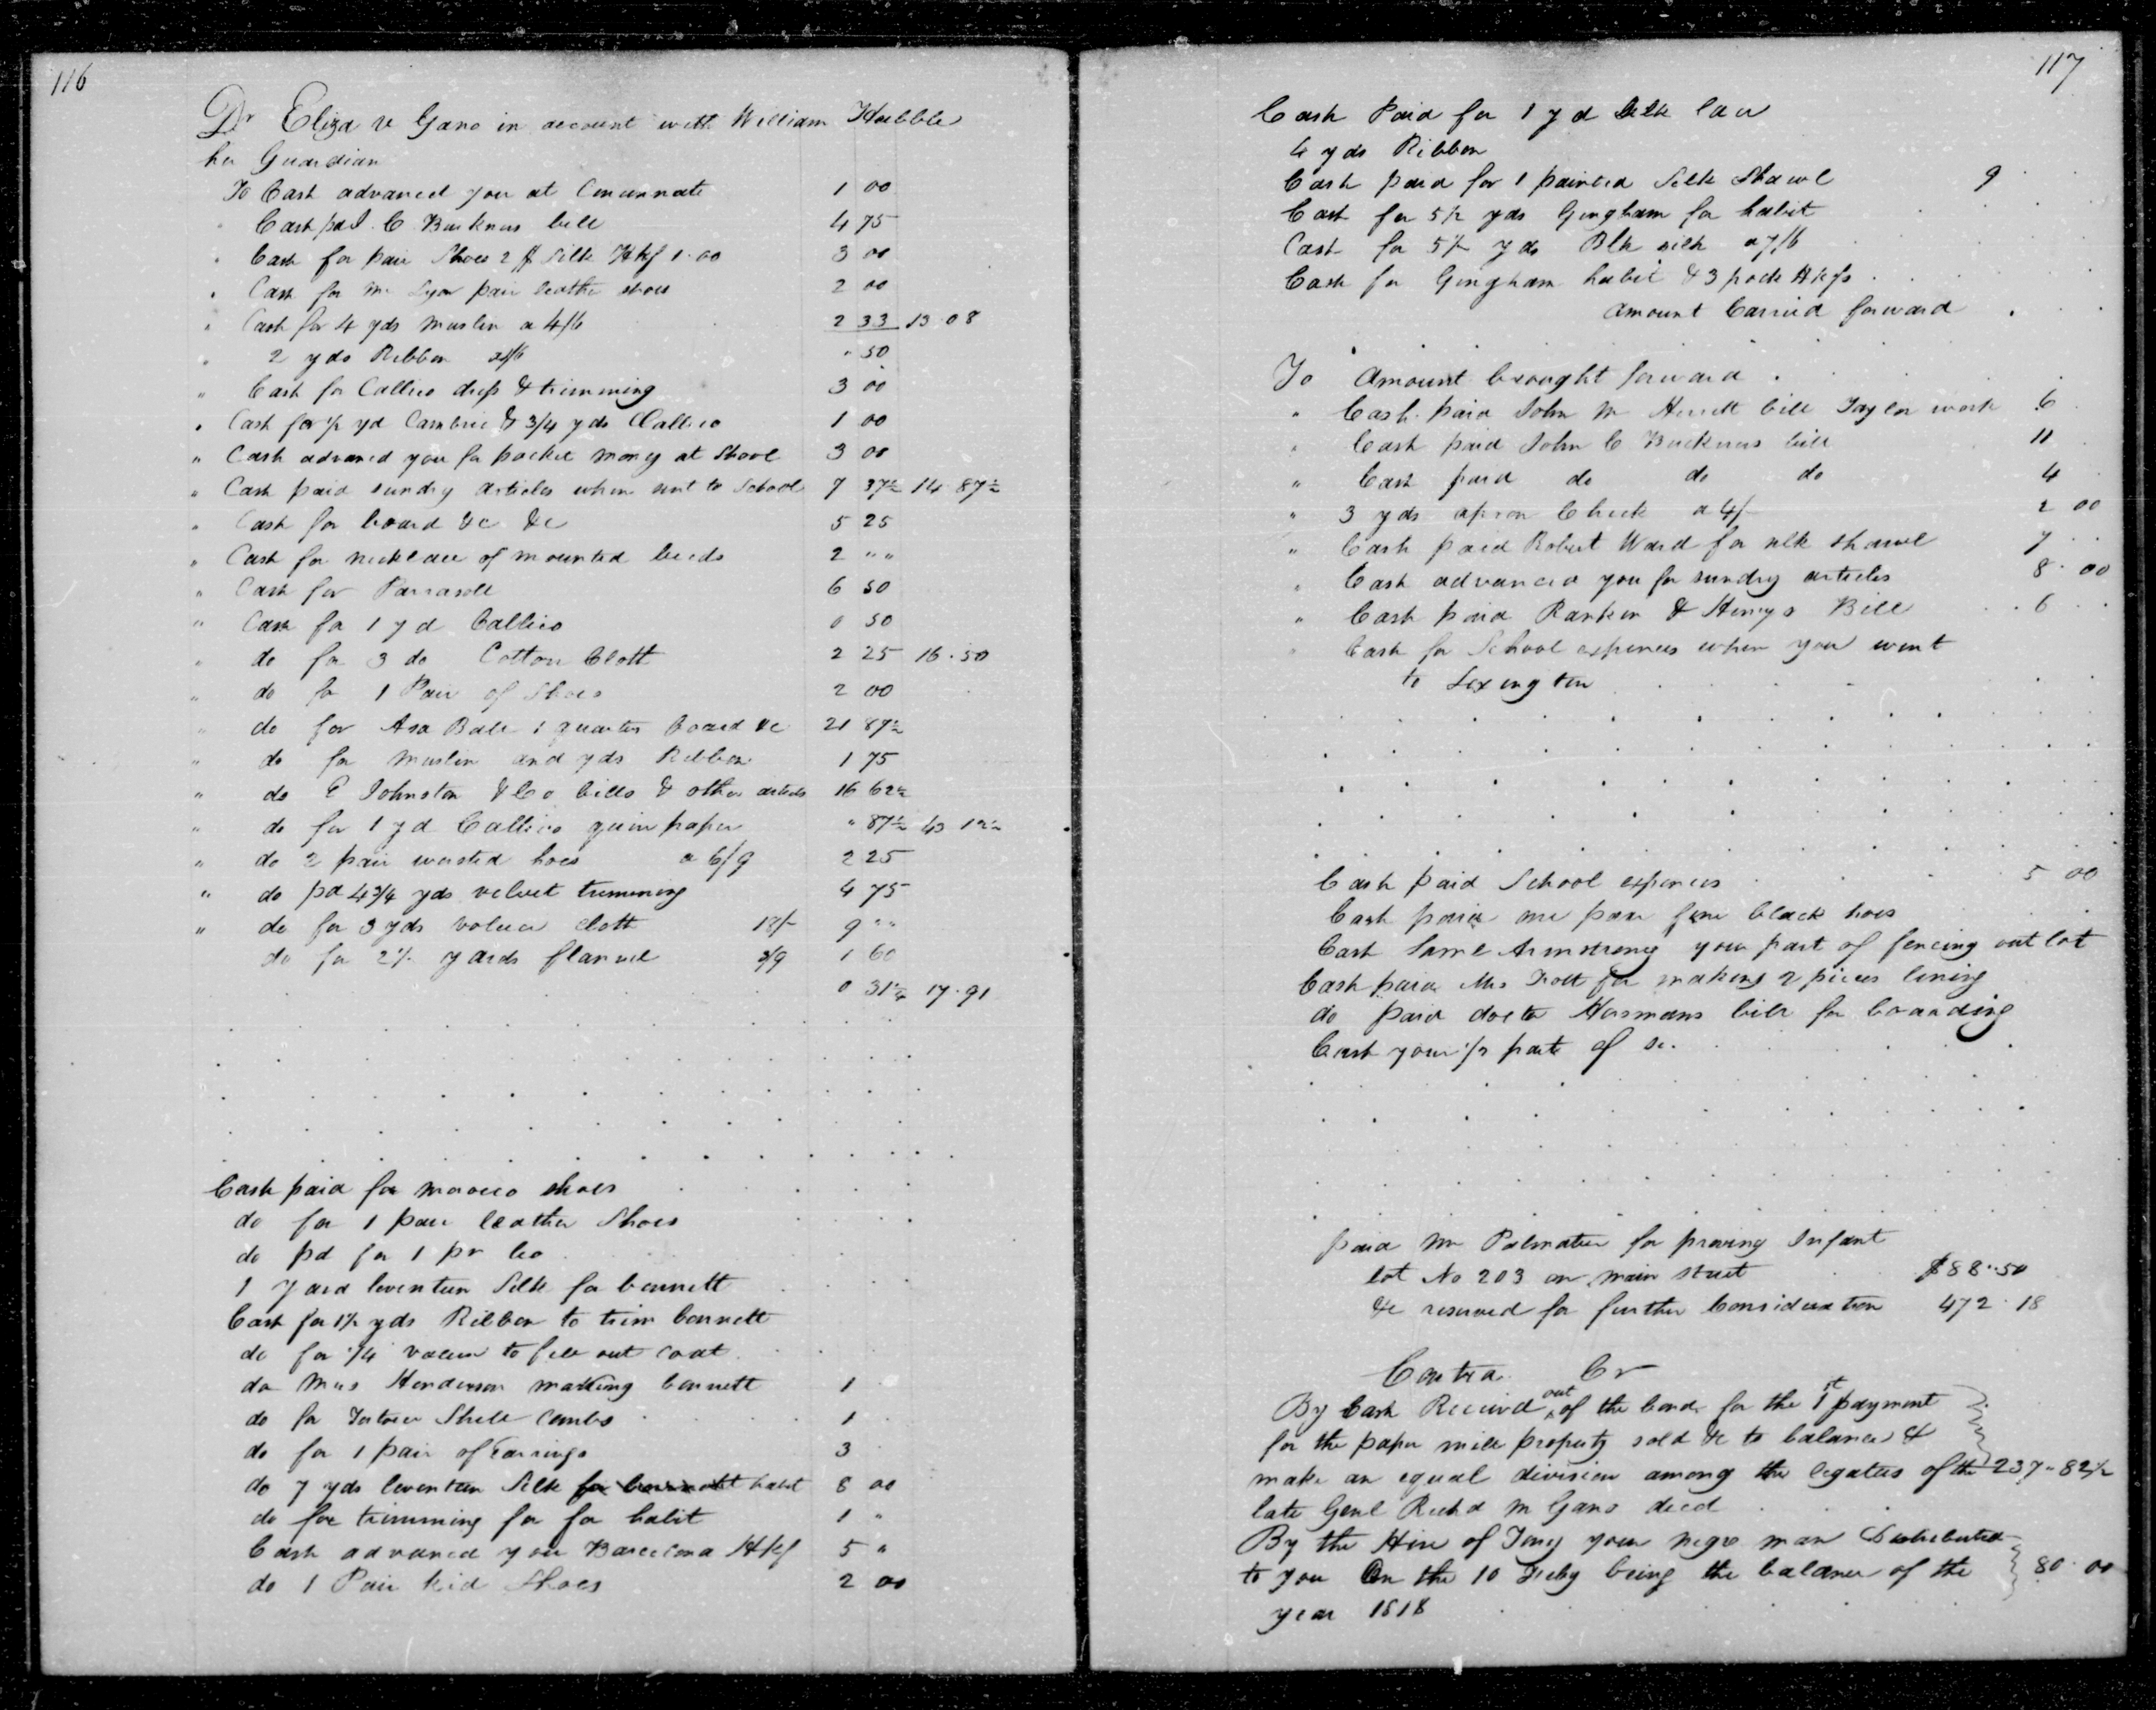 116
Dr Eliza v Gano in account with William Hubble
her Guardian
To Cash advanced you at Cincinnati 1 00
" Cash pad. C. Buckners bill 4 75
" Cash for pair Shoes 2 $ Silk Hkf 1.00 3 00
" Cash for Mr Lyon pair leather shoes 2 00
" Cash for 4 yds muslin a 4/6 2 33 13.08
" 2 yds Ribbon " 50
" Cash for Callico dress & trimming 3 00
" Cash for 1/2 yd Cambric & 3/4 yds Callico 1 00
" Cash advanced you for pocket money at Shool 3 00
" Cash paid sundry articles when sent to School 7 37½ 14 87½
" Cash for board &c &c 5 25
" Cash for necklace of mounted beeds 2 " "
" Cash for Parrasoll 6 50
" Cash for 1 yd Callico 0 50
" do for 3 do Cotton Cloth 2 25 16.50
" do for 1 Pair of Shoes 2 00
" do for Asa Bale 1 quarter Board &c 21 87½
" do for muslin and yds Ribbon 1 75
" do E Johnston & Co bills & other articles 16 62½
" do for 1 yd Callico quire paper " 87½ 43 12½
" do 2 pair worsted hoes a 6/9 2 25
" do pd 4 3/4 yds velvet trimming 4 75
" do for 3 yds cloth 18/- 9 " "
do for 2½ yards flannel 3/9 1 60
0 31¼ 17.91
Cash paid for morocco shoes
do for 1 pair leather Shoes
do pd for 1 pr
1 Yard leventeen Silk for bonnett
Cash for 1½ yds Ribbon to trim bonnett
do for 1/4 to fill out coat
do Mrs Henderson making bonnett 1
do for Tortoies Shell Combs 1
do for 1 pair of Earrings 3
do 7 yds leventeen Silk habit 8 00
do for trimming for for habit 1 "
Cash advanced you Barcelona Hkf 5 "
do 1 Pair kid Shoes 2 00
117
Cash Paid for 1 yd Silk lace
4 yds Ribbon
Cash paid for 1 painted Silk Shawl 9
Cash for 5½ yds Gingham for habit
Cash for 5½ yds Blk silk a 7/6
Cash for Gingham habit & 3 pock Hkfs
Amount Carried forward
To Amount brought forward
" Cash paid John M Hewitt bill Taylor work 6
" Cash paid John C Buckners bill 11
" Cash paid do do do 4
" 3 yds apron Check a 4/- 2 00
" Cash paid Robert Ward for silk shawl 7
" Cash advanced you for sundry articles 8.00
" Cash paid Rankin & Henrys Bill 6
" Cash for School expences when you went
to Lexington
Cash paid School expences 5 00
Cash paid one pair fine black hoes
Cash Saml Armstrong your part of fencing out lot
Cash paid Mrs Trott for making 2 pieces lining
do paid doctor Hersmans bill for boarding
Cash your 1/3 parts of sc.
paid Mr Palmatier for proving Infant
lot No 203 on main street $88.50
&c reserved for further Consideration 472.18
Contra Cr
By Cash Received out of the bonds for the 1st payment
for the paper mill property sold &c to balance &
make an equal division among the legatees of the 237.82½
late Genl Richd M Gano decd
By the Hire of Tony your negro man Distributed
to you On the 10 Feby being the balance of the 80.00
year 1818